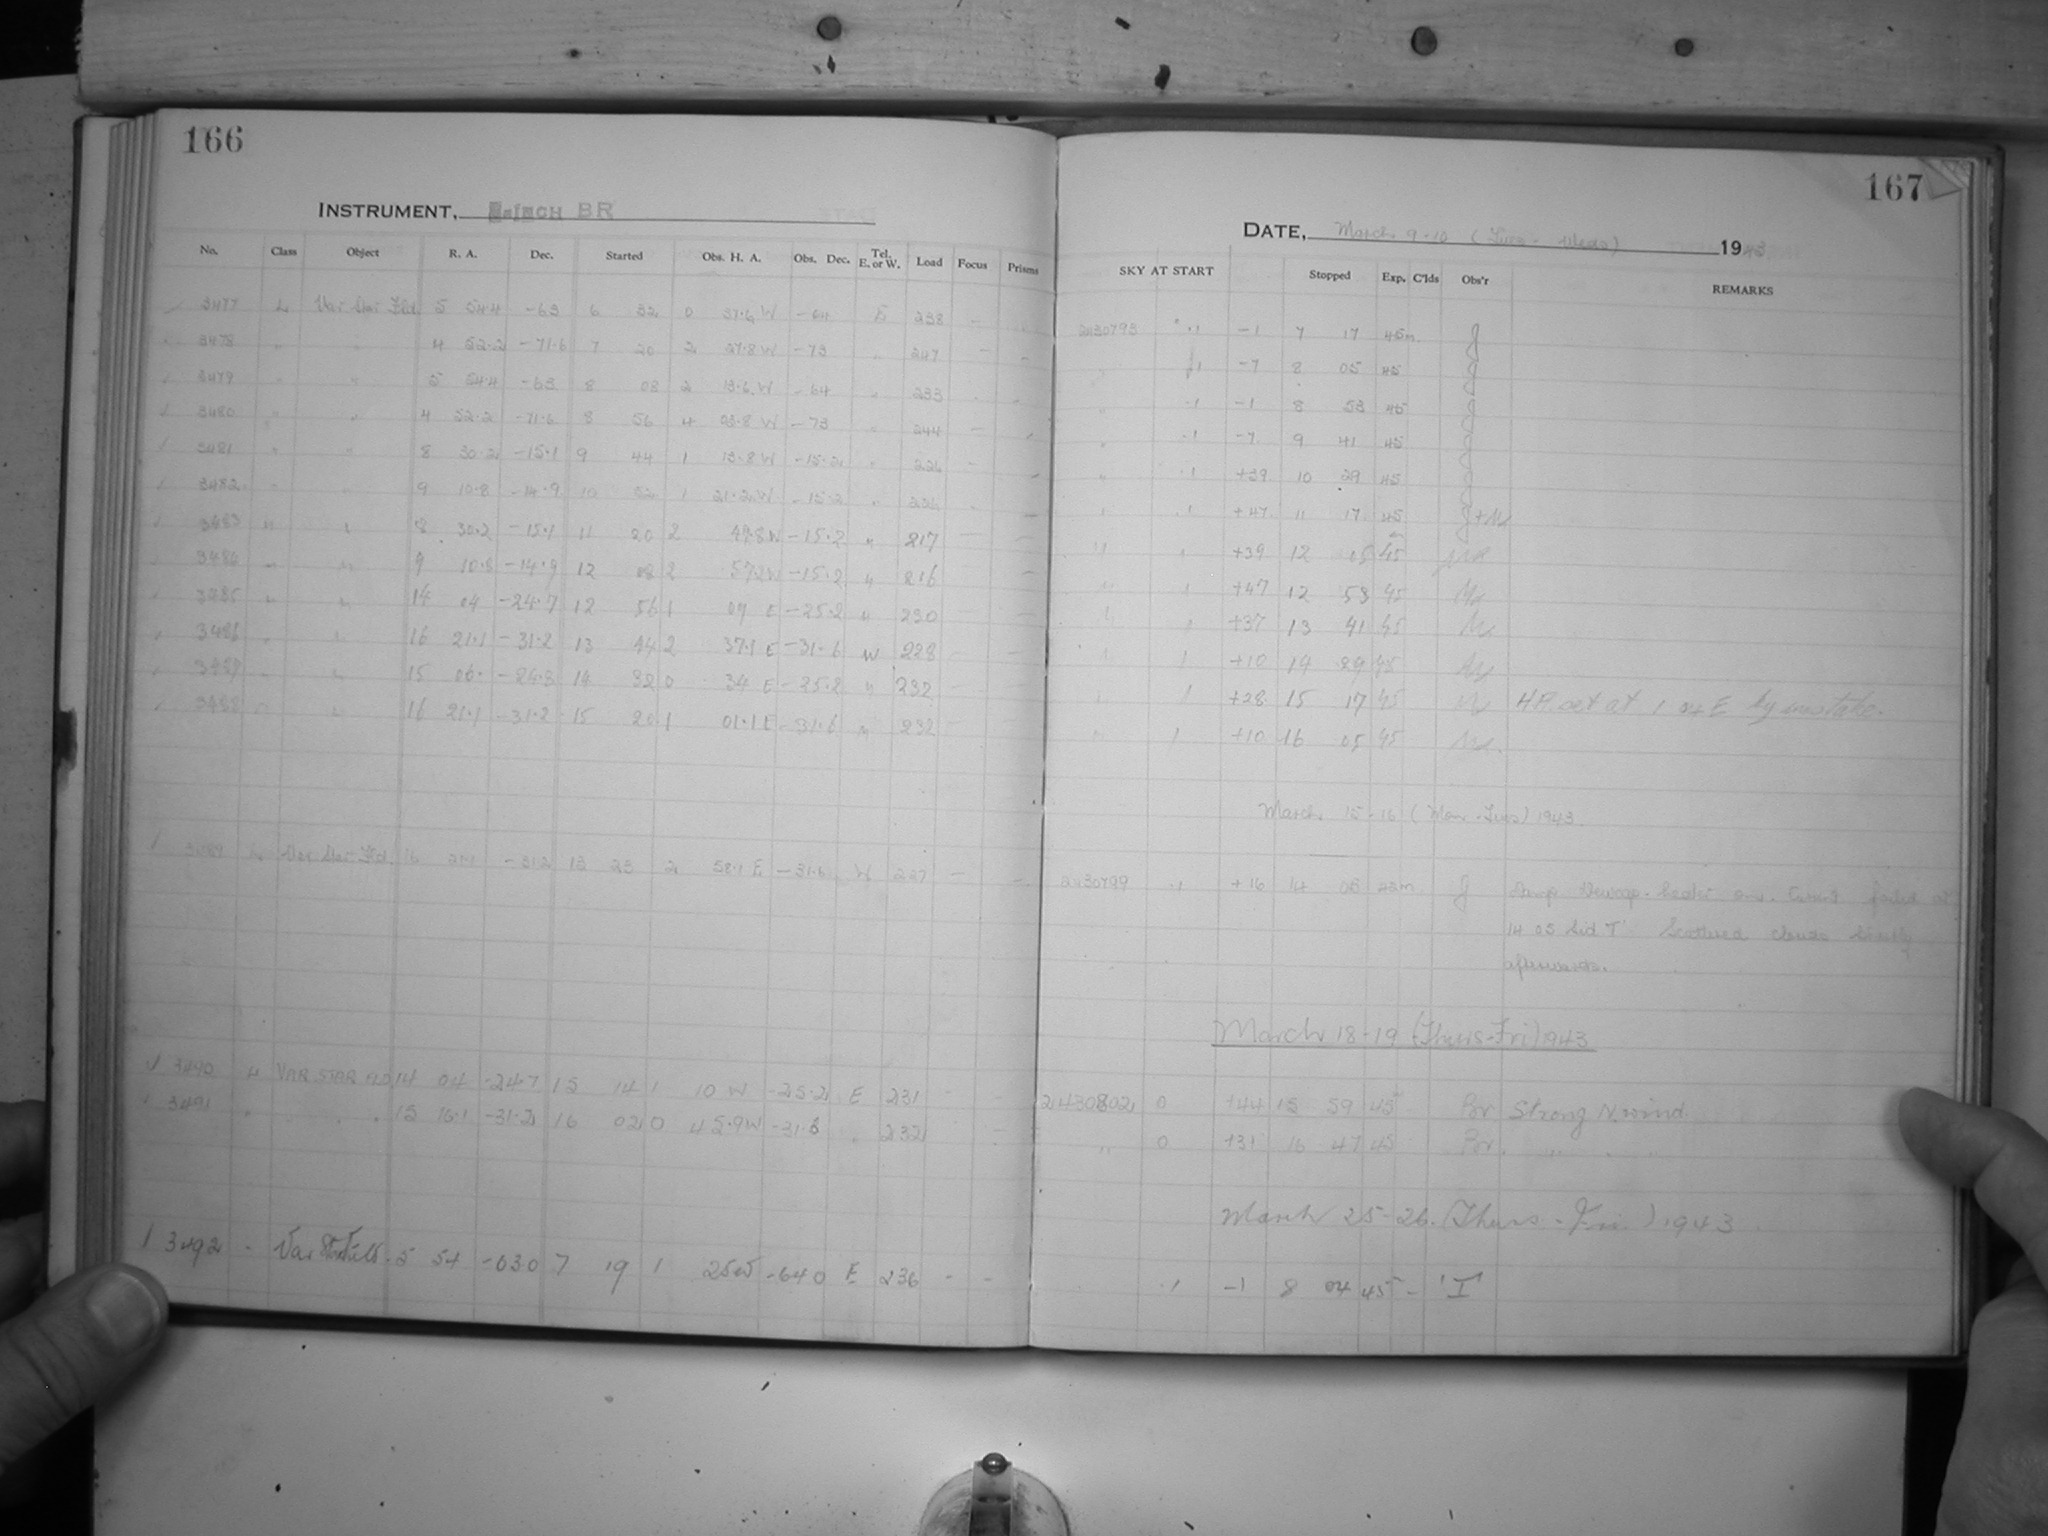 166
INSTRUMENT, INCH BR
No. Class Object R. A. Dec. Started Obs. H. A. Obs. Dec. Tel. E. or W. Load Focus Prisms
3477 Var Star Fld. 5 54.4 -63 6 32 0 37.6 W -64 E 238 -
3478 " " 4 52.2 -71.6 7 20 2 27.8 W -73 " 247 -
3479 " " 5 54.4 -63 8 08 2 13.6 W -64 " 233
3480 " " 4 52.2 -71.6 8 56 4 03.8 W -73 " 244 -
3481 " " 8 30.2 -15.1 9 44 1 13.8 W -15.2 "
3482 " " 9 10.8 -14.9 10 32 1 21.2 W -15.2
3483 " " 8 30.2 -15.1 11 20 2 49.8 W -15.2 " 217 -
3484 " " 9 10.8 -14.9 12 08 2 57.2 W -15.2 " 216
3485 " " 14 04 -24.7 12 56 1 07 E -25.2 " 230
3486 " " 16 21.1 -31.2 13 44 2 37.1 E -31.6 W 228 -
3487 " " 15 06 14 32 0 34 E -25.2 " 232 -
3488 " " 16 21.1 -31.2 15 20 1 01.1 E -31.6 " 232 -
3489 Var Star Fld. 16 21.1 -31.2 13 23 2 58.1 E -31.6 W 227 -
3490 VAR STAR FLD 14 04 -24.7 15 14 1 10 W -25.2 E 231
3491 " " 15 16.1 -31.2 16 02 0 45.9 W " 232
3492 - Var Star Field. 5 54 -63 0 7 19 1 25 W -64 0 E 236 - -
167
DATE, March 9-10 (Tues - Weds) 1943
SKY AT START Stopped Exp. C'lds Obs'r REMARKS
2430793 -1 7 17 45m J
" -7 8 05 45
" .1 -1 8 53 45
" .1 -7 9 41 45
" .1 +39 10 29 45
" .1 +47 11 17 45
" +39 12 05 45
" +47 12 53 45
" +37 13 41 45
" 1 +10 14 29 45
" 1 +28 15 17 45 HA set at 1 04 E by mistake.
" 1 +10 16 05 45
March 15-16 (Mon - Tues) 1943
2430799 .1 +16 14 08 45m J Damp. Dewcap-heater on. Current failed at
14 05 Sid T. Scattered clouds
afterwards.
March 18-19 (Thurs-Fri) 1943
2430802 0 +44 15 59 45 Br Strong N. wind
" 0 +31 16 47 45 Br. " "
March 25-26. (Thurs - Fri) 1943
.1 -1 8 04 45 - 'I'